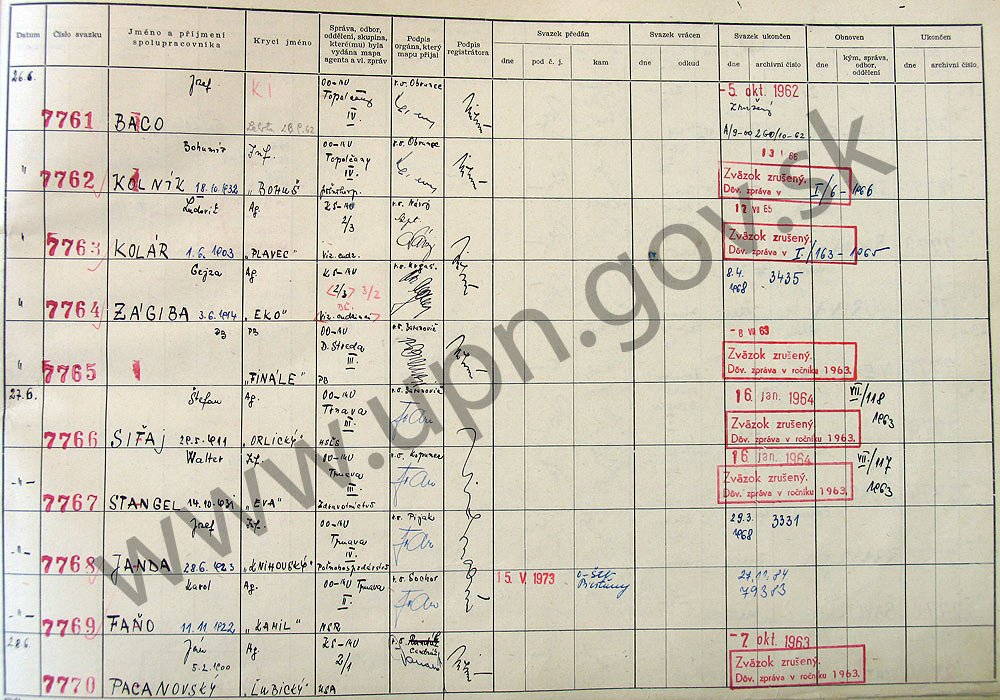 Datum
Číslo svazku
Jméno a příjmení
spolupracovníka
Krycí jméno
Správa, odbor,
oddělení, skupina,
které(mu) byla
vydána mapa
agenta a vl. zpráv
Podpis
orgána, který
mapu přijal
Podpis
registrátora
Svazek předán
dne
pod č. j.
kam
Svazek vrácen
dne
odkud
Svazek ukončen
dne
archivní číslo
Obnoven
dne
kým, správa,
odbor,
oddělení
Ukončen
dne
archivní číslo
26.6.
7761
Jozef
BACO
KI
OO-MV
Topolčany
IV
v.z. Obrunce
-5. okt. 1962
Zrušený
A/9-00260/10-62
"
7762
Bohumír
KOLNÍK 18.10.1932
Inf.
"BOHUŠ"
OO-MV
Topolčany
IV.
v.z. Obrunce
Zväzok zrušený.
Dôv. zpráva v I/6-1966
"
7763
Ľudovít
KOLÁR 1.6.1903
Ag.
"PLAVEC"
KS-MV
2/3
Viz. cudz.
12 VII 65
Zväzok zrušený.
Dôv. zpráva v I./163-1965
"
7764
Gejza
ZÁGIBA 3.6.1914
Ag
"EKO"
KS-MV
(2/3) 3/2
8.4.
1968
3435
"
7765
PB
"FINÁLE"
OO-MV
D. Streda
III.
PB
-8 VII 63
Zväzok zrušený.
Dôv. zpráva v ročníku 1963.
27.6.
7766
Štefan
SIŤAJ 29.5.1911
Ag.
"ORLICKÝ"
OO-MV
Trnava
III.
16 jan. 1964
Zväzok zrušený.
Dôv. zpráva v ročníku 1963.
VII./118
1963
-"-
7767
Walter
STANGEL 14.10.1931
"EVA"
OO-MV
Trnava
III.
Zdravotníctvo
v.z. Kopunec
16 jan. 1964
Zväzok zrušený.
Dôv. zpráva v ročníku 1963.
VII./117
1963
-"-
7768
Jozef
JANDA 28.6.1923
"KNIHOVSKÝ"
OO-MV
Trnava
IV.
Poľnohospodárstvo
v.z. Pijak
29.3.
1968
3331
-"-
7769
Karol
FAŇO 11.11.1922
Ag.
"KAMIL"
OO-MV Trnava
II.
NSR
v.z. Sochor
15. V. 1973
Piešťany
27.11.84
79383
28.6.
7770
Ján
5.2.1900
PACANOVSKÝ
Ag
"ĽUBICKÝ"
KS-MV
2/1
USA
-7 okt 1963
Zväzok zrušený.
Dôv. zpráva v ročníku 1963.
www.upn.gov.sk